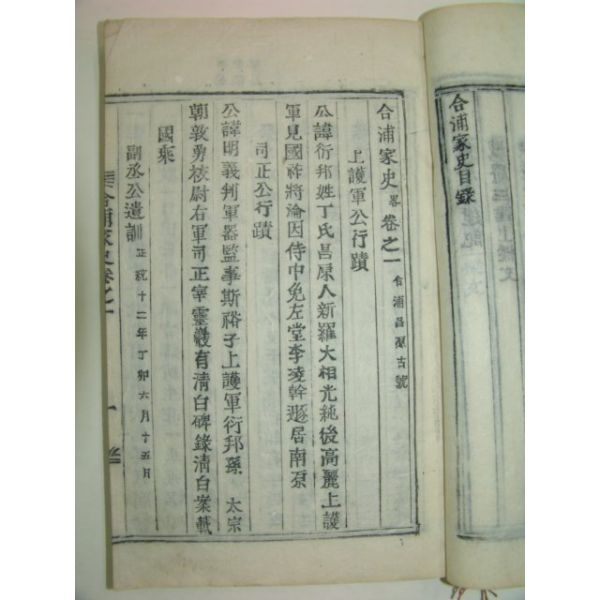 合浦家史目錄
合浦家史畧卷之一 合浦昌原古號
上護軍公行蹟
公諱衍邦姓丁氏昌原人新羅大相光純後高麗上護
軍見國祚將淪因侍中免左堂李凌幹遯居南原
司正公行蹟
公諱明義判軍器監事斯裕子上護軍衍邦孫 太宗
朝敦勇校尉右軍司正宰靈巖有清白碑錄清白案載
國乘
副丞公遺訓 正統十二年丁卯六月十五日
合浦家史卷之一